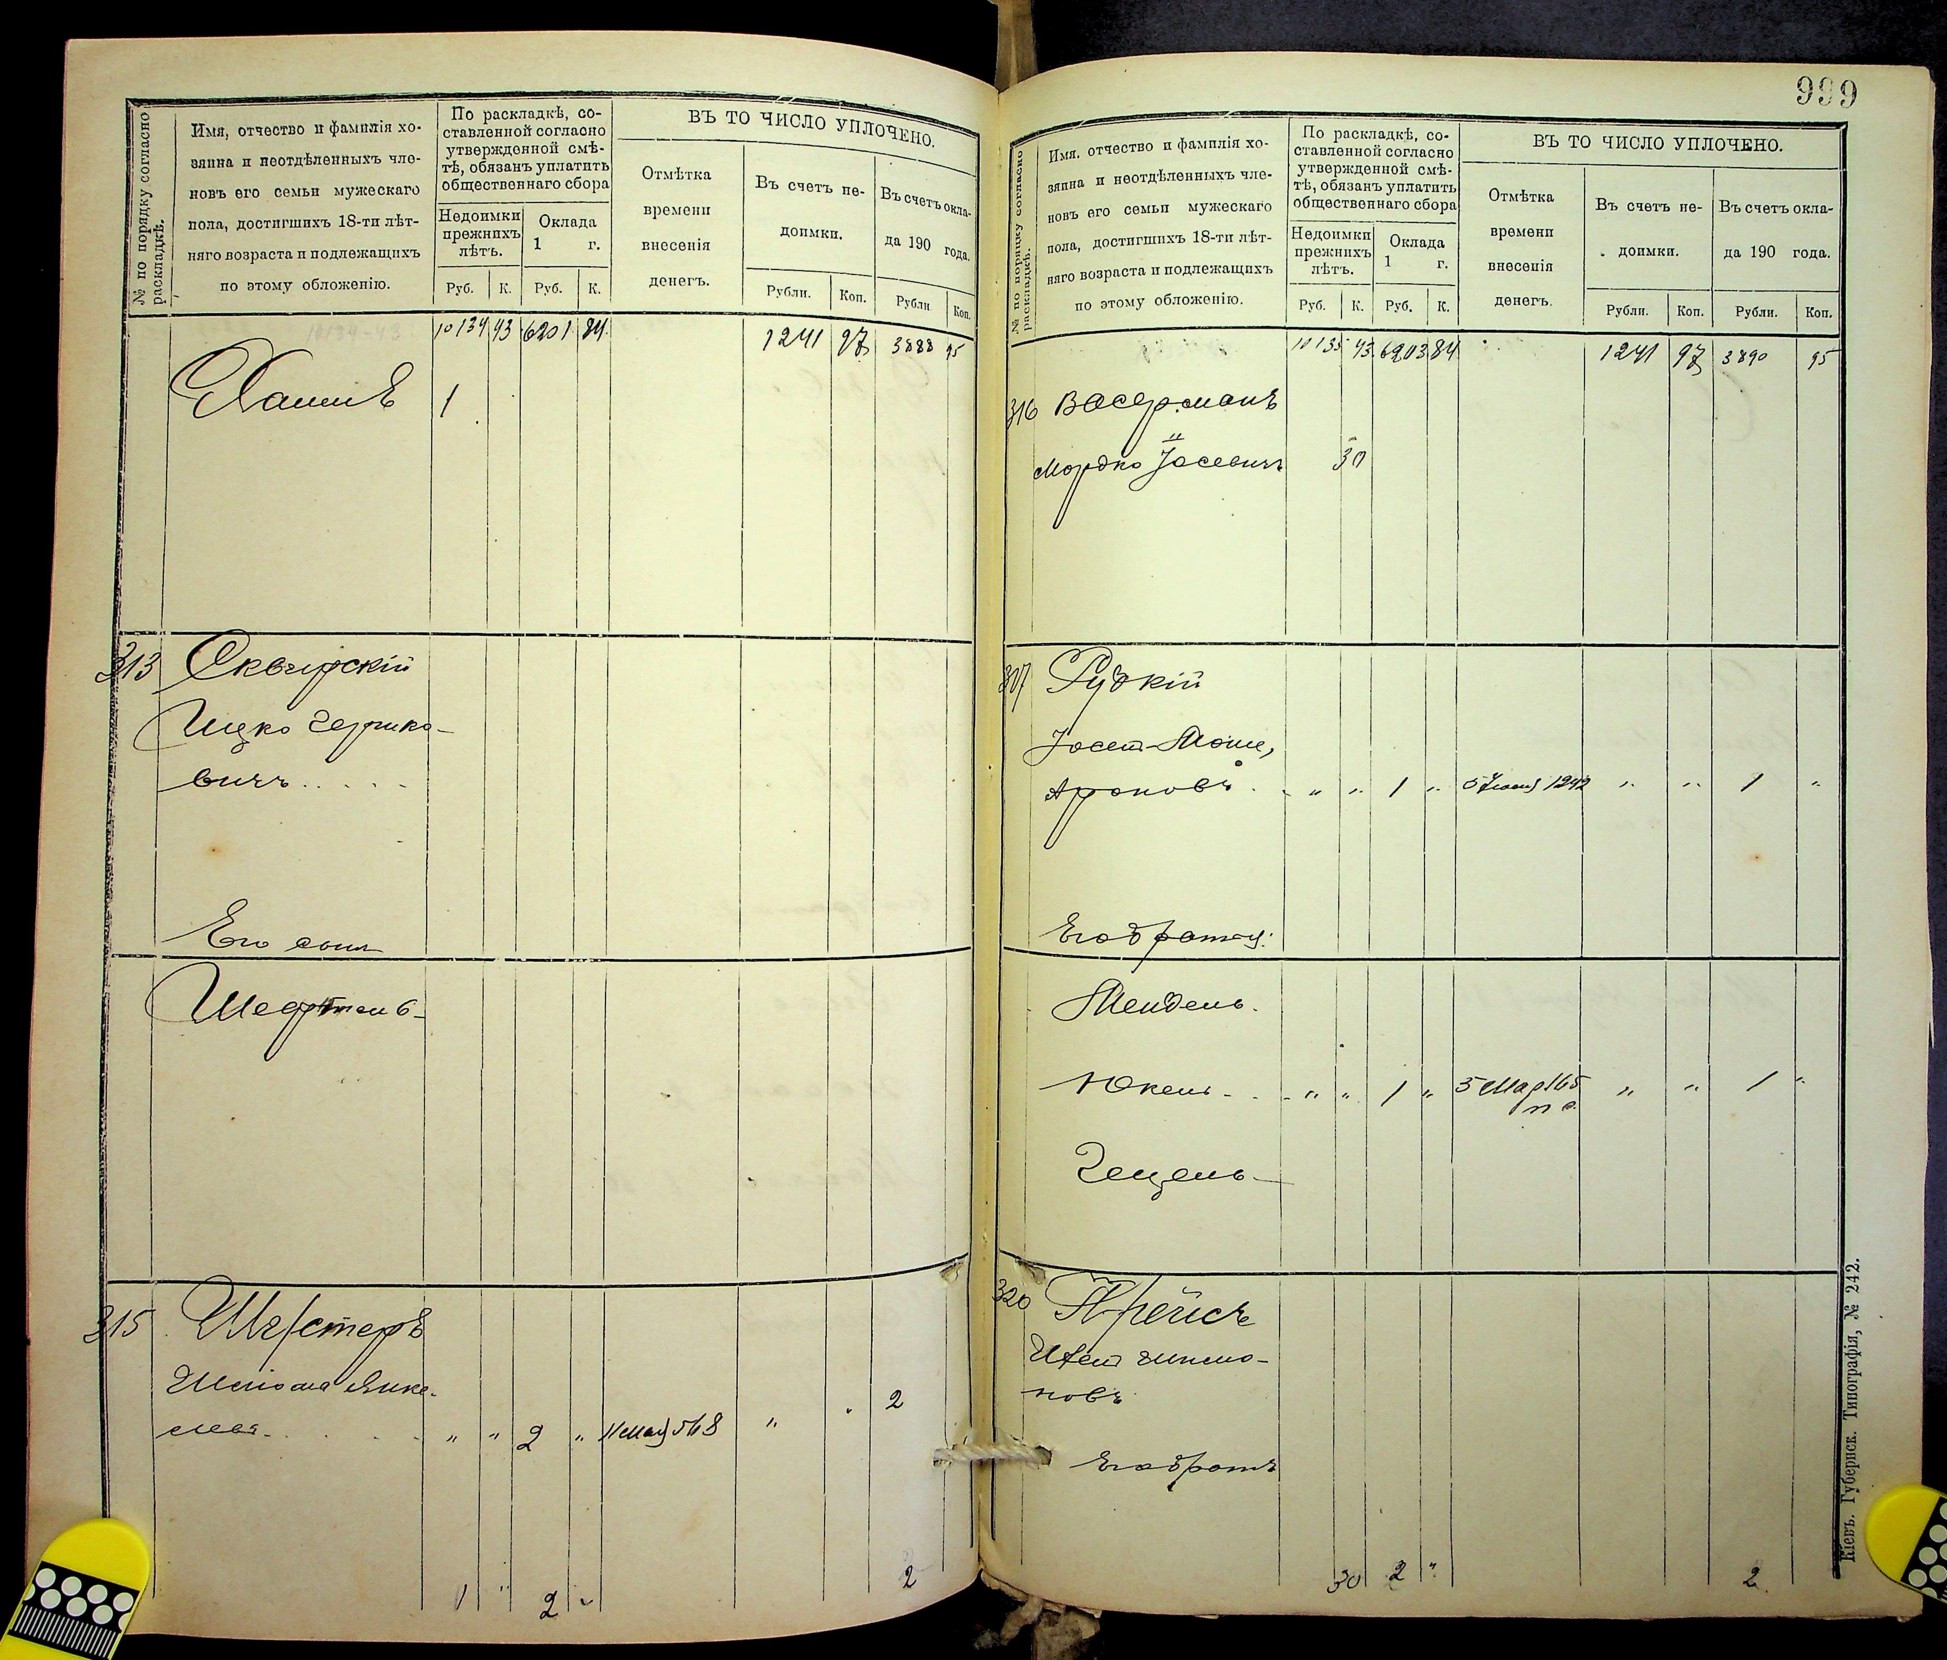 № по порядку согласно
раскладкѣ.
Имя, отчество и фамилія хо-
зяина и неотдѣленныхъ чле-
новъ его семьи мужескаго
пола, достигшихъ 18-ти лѣт-
няго возраста и подлежащихъ
по этому обложенію.
По раскладкѣ, со-
ставленной согласно
утвержденной смѣ-
тѣ, обязанъ уплатить
общественнаго сбора
Недоимки
прежнихъ
лѣтъ.
Оклада
1 г.
Руб. К. Руб. К.
ВЪ ТО ЧИСЛО УПЛОЧЕНО.
Отмѣтка
времени
внесенія
денегъ.
Въ счетъ не-
доимки.
Въ счетъ окла-
да 190 года.
Рубли. Коп. Рубли Коп.
10134 43 6201 84 1241 97 3888 95
1
313 Сквирскій
Ицко
вичъ
Его сынъ
315
" " 2 " " 2
1 " 2 " 2
999
№ по порядку согласно
раскладкѣ.
Имя, отчество и фамилія хо-
зяина и неотдѣленныхъ чле-
новъ его семьи мужескаго
пола, достигшихъ 18-ти лѣт-
няго возраста и подлежащихъ
по этому обложенію.
По раскладкѣ, со-
ставленной согласно
утвержденной смѣ-
тѣ, обязанъ уплатить
общественнаго сбора
Недоимки
прежнихъ
лѣтъ.
Оклада
1 г.
Руб. К. Руб. К.
ВЪ ТО ЧИСЛО УПЛОЧЕНО.
Отмѣтка
времени
внесенія
денегъ.
Въ счетъ не-
доимки.
Въ счетъ окла-
да 190 года.
Рубли. Коп. Рубли. Коп.
10135 43 6203 84 1241 97 3890 95
316 Васерманъ
Мордко Іосевичъ 30
Рудкій
Мошя,
Ароновъ " " 1 " 5 1242 " " 1 "
Его братья:
Мендель
Юкель " " 1 " 5 Мар 165 " " 1 "
Гецель
320 Крейсъ
новъ
Его братъ
30 2 " 2
Кіевъ. Губернск. Типографія, № 242.